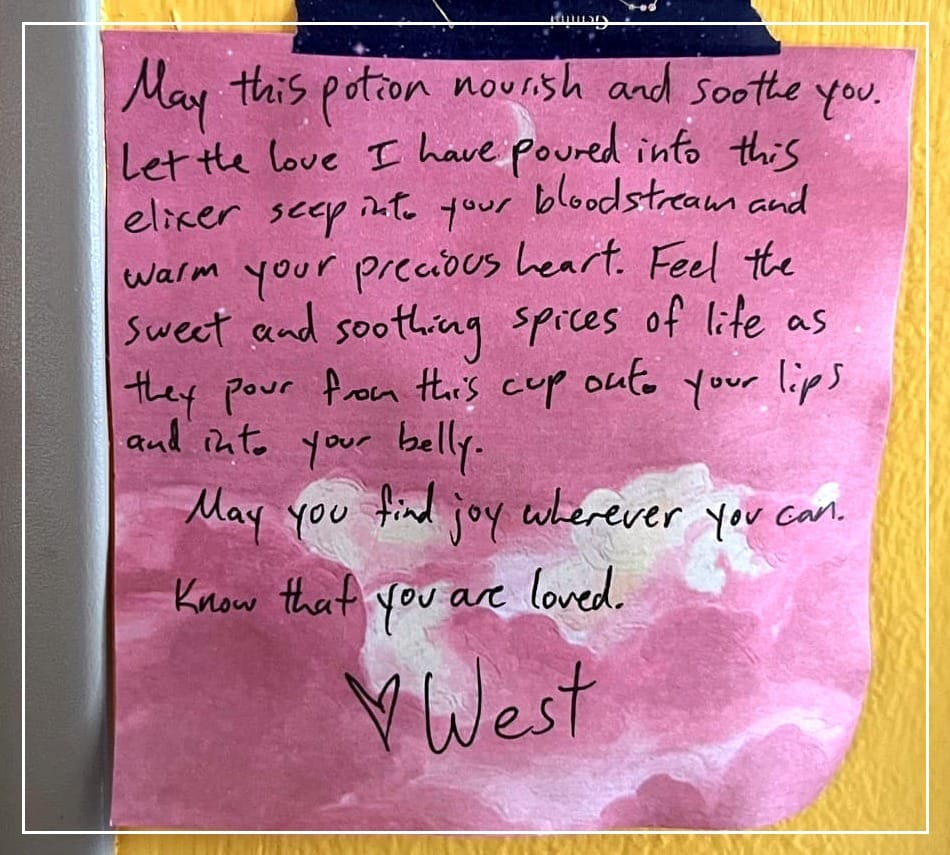 May this potion nourish and soothe you.
Let the love I have poured into this
elixer seep into your bloodstream and
warm your precious heart. Feel the
sweet and soothing spices of life as
they pour from this cup onto your lips
and into your belly.
May you find joy wherever you can.
Know that you are loved.
♡ West